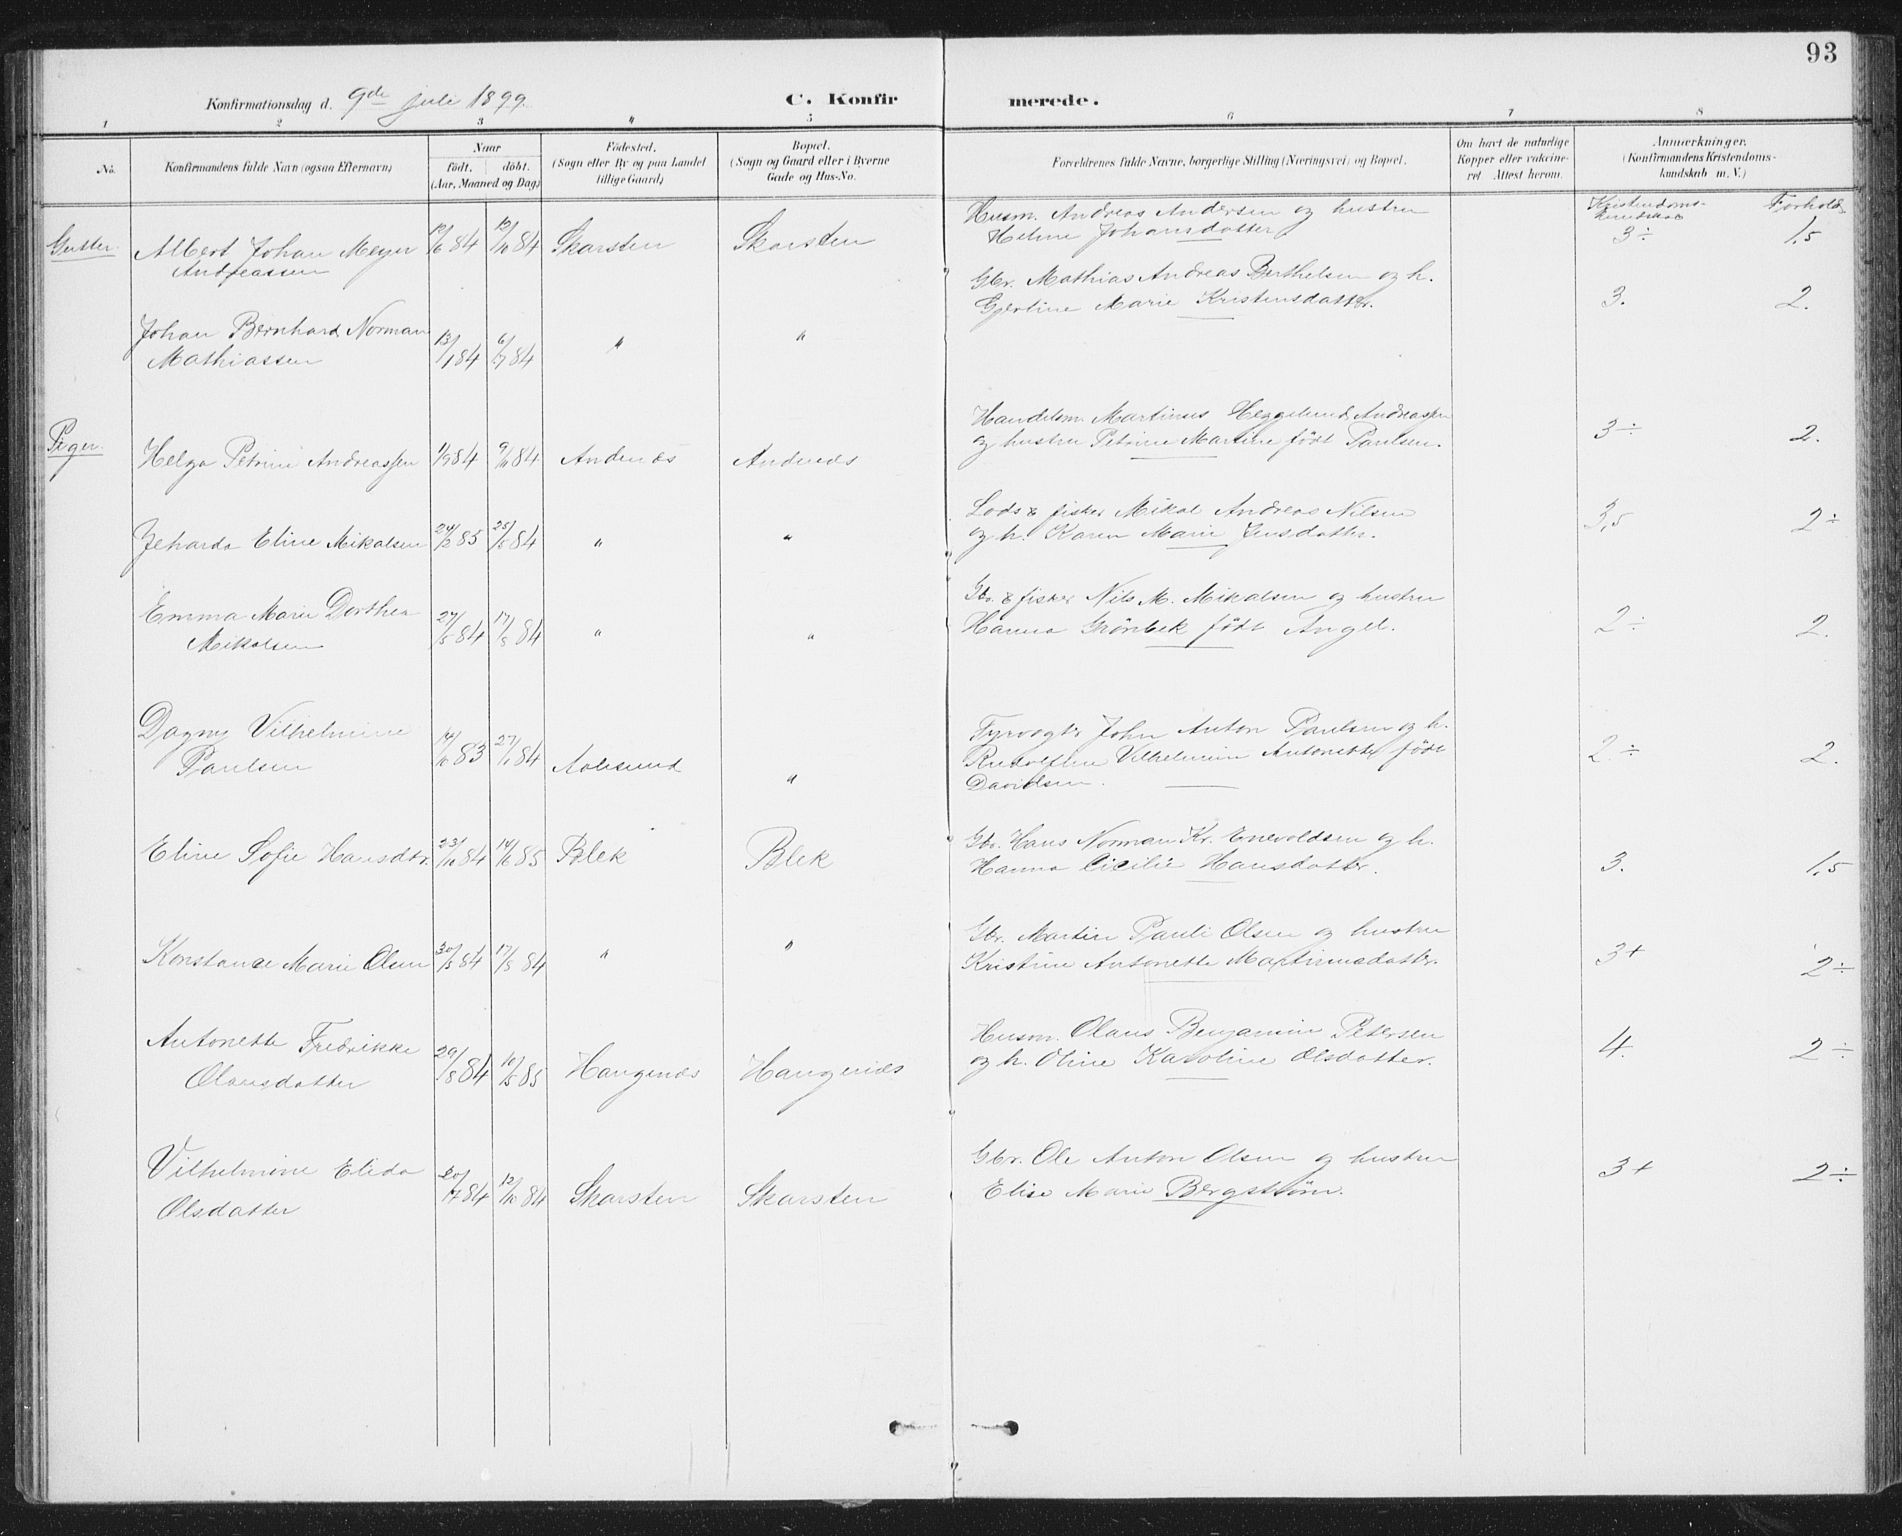 93
Konfirmationsdag d. 9de juli 1899.
C. Konfirmerede.
1 2 3 " 5 6 7 8
No.
Konfirmandens fulde Navn (ogsaa Efternavn)
Naar
født. døbt.
(Aar, Maaned og Dag)
Fødested.
(Sogn eller By og paa Landet
tillige Gaard)
Bopæl.
(Sogn og Gaard eller i Byerne
Gade og Hus-No.
Forældrenes fulde Navne, borgerlige Stilling (Næringsvei) og Bopæl.
Om havt de naturlige
Kopper eller vaccine-
ret. Attest herom.
Anmærkninger.
(Konfirmandens Kristendoms-
kundskab m. V.)
Kristendoms- Forhold.
kundskab
Gutter. Albert Johan Meyer 84 84 Skarsten Skarsten Husm. Andreas Andersen og hustru 3÷ 1,5
Andreassen Heline Johansdatter
Johan Bernhard Norman 13/1 84 6/7 84 " " Gbr. Mathias Andreas Berthelsen og h. 3. 2.
Mathiassen Gjertine Marie Kristensdatter.
Piger. Helga Petrine Andreassen 1/9 84 84 Andenæs Andenæs Handelsm. Martinus Heggelund Andreassen 3÷ 2.
og hustru Petrine Martine født Paulsen.
Eline Mikalsen 85 84 " " Lods & fisker Mikal Andreas Nilsen 3,5 2÷
og h. Karen Marie Jensdatter.
Emma Marie Dorthea 84 84 " " Gbr. & fisker Nils M. Mikalsen og hustru 2÷ 2.
Mikalsen Hanna Grönbek født Angel.
Dagny Vilhelmine 83 27/1 84 Aalesund " Fyrvogter John Anton Paulsen og h. 2÷ 2.
Paulsen Rudolfine Vilhelmine Antonette født
Davidsen.
Eline Sofie Hansdtr. 84 85 Blek Blek Gbr. Hans Norman Kr. Enevoldsen og h. 3. 1,5
Hanna Cicilie Hansdatter.
Konstance Marie Olsen 84 84 " " Gbr. Martin Pauli Olsen og hustru 3+ 2÷
Kristine Antonette Martinusdatter.
Antonette Fredrikke 29/8 84 85 Haugenæs Haugenæs Husm. Olaus Benjamin Petersen 4. 2÷
Olausdatter og h. Oline Karoline Olsdatter.
Vilhelmine Elida 84 12/10 84 Skarsten Skarsten Gbr. Ole Anton Olsen og hustru 3+ 2÷
Olsdatter Elise Marie Bergstrøm.